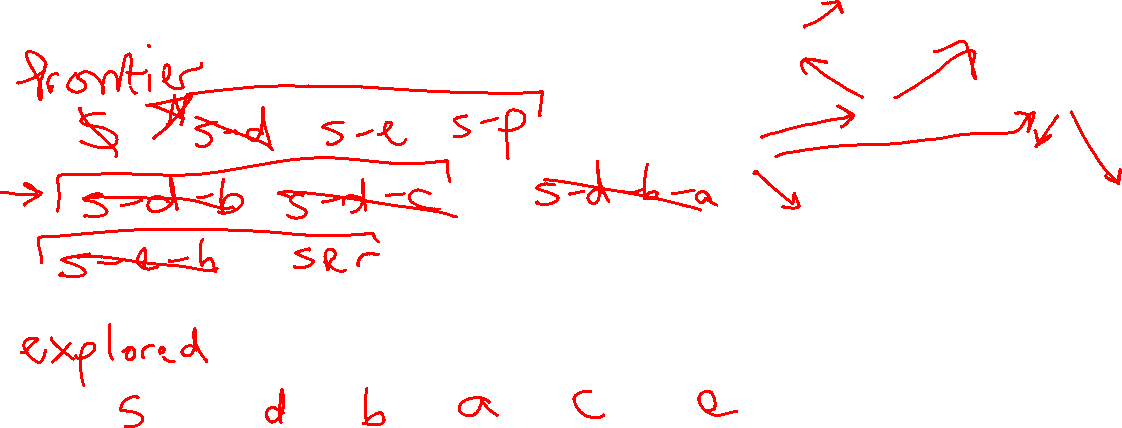 frontier
S s-d s-e s-p
s-d-b s-d-c s-d-b-a
s-e-h s e r
explored
S d b a c e